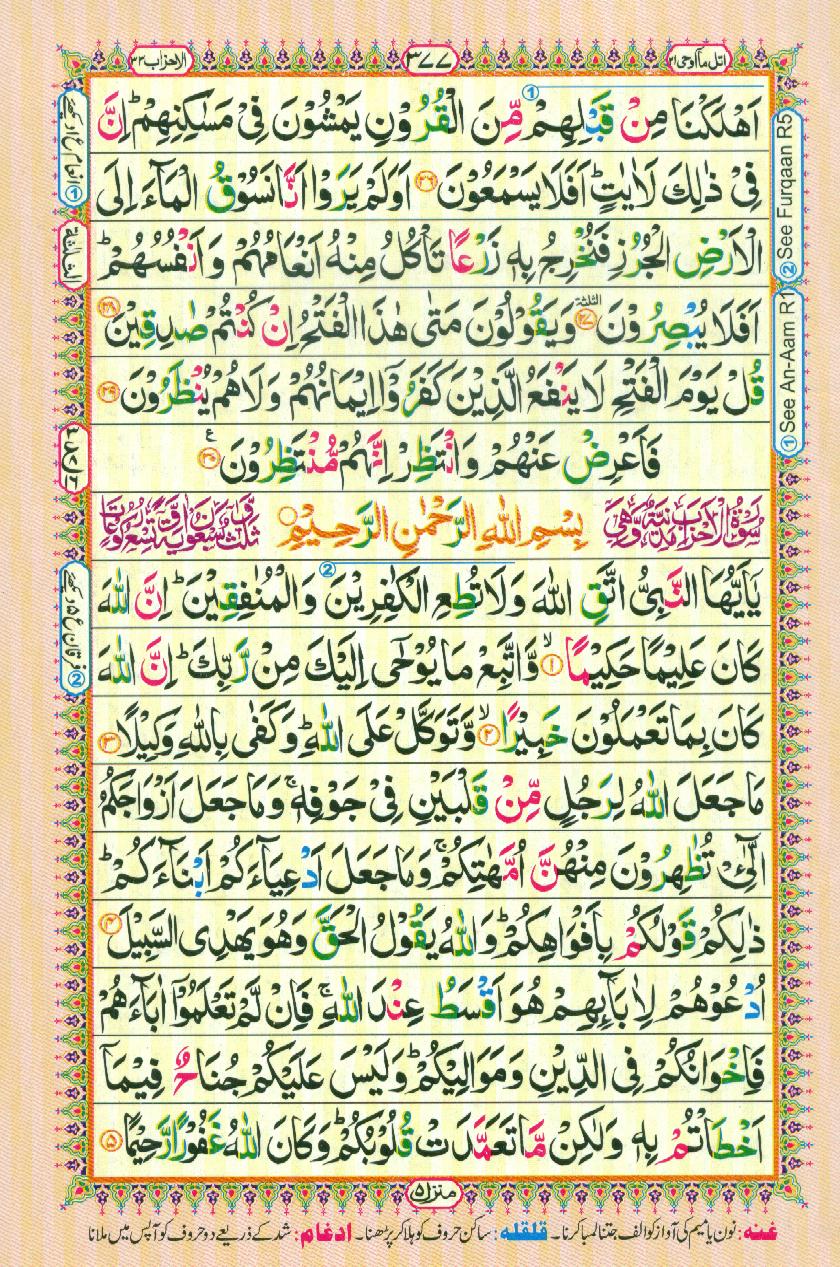 الاحزاب ٣٣
٣٧٧
اتل ما اوحی ٢١
اَهْلَكْنَا مِنْ قَبْلِهِمْ مِّنَ الْقُرُوْنِ يَمْشُوْنَ فِيْ مَسٰكِنِهِمْ ؕ اِنَّ
فِيْ ذٰلِكَ لَاٰيٰتٍ ؕ اَفَلَا يَسْمَعُوْنَ ۝٢٦ اَوَلَمْ يَرَوْا اَنَّا نَسُوْقُ الْمَآءَ اِلَى
الْاَرْضِ الْجُرُزِ فَنُخْرِجُ بِهٖ زَرْعًا تَاْكُلُ مِنْهُ اَنْعَامُهُمْ وَاَنْفُسُهُمْ ؕ
اَفَلَا يُبْصِرُوْنَ ۝٢٧ الثلثة وَيَقُوْلُوْنَ مَتٰى هٰذَا الْفَتْحُ اِنْ كُنْتُمْ صٰدِقِيْنَ ۝٢٨
قُلْ يَوْمَ الْفَتْحِ لَا يَنْفَعُ الَّذِيْنَ كَفَرُوْۤا اِيْمَانُهُمْ وَلَا هُمْ يُنْظَرُوْنَ ۝٢٩
فَاَعْرِضْ عَنْهُمْ وَانْتَظِرْ اِنَّهُمْ مُّنْتَظِرُوْنَ ۝٣٠ ع
سُوْرَةُ الْاَحْزَابِ مَدَنِيَّةٌ وَّهِيَ بِسْمِ اللّٰهِ الرَّحْمٰنِ الرَّحِيْمِ ثَلٰثٌ وَّسَبْعُوْنَ اٰيَةً وَّتِسْعُ رُكُوْعَاتٍ
يٰۤاَيُّهَا النَّبِيُّ اتَّقِ اللّٰهَ وَلَا تُطِعِ الْكٰفِرِيْنَ وَالْمُنٰفِقِيْنَ ؕ اِنَّ اللّٰهَ
كَانَ عَلِيْمًا حَكِيْمًا ۝١ۙ وَّاتَّبِعْ مَا يُوْحٰۤى اِلَيْكَ مِنْ رَّبِّكَ ؕ اِنَّ اللّٰهَ
كَانَ بِمَا تَعْمَلُوْنَ خَبِيْرًا ۝٢ۙ وَّتَوَكَّلْ عَلَى اللّٰهِ ؕ وَكَفٰى بِاللّٰهِ وَكِيْلًا ۝٣
مَا جَعَلَ اللّٰهُ لِرَجُلٍ مِّنْ قَلْبَيْنِ فِيْ جَوْفِهٖ ۚ وَمَا جَعَلَ اَزْوَاجَكُمُ
الّٰٓـِٔيْ تُظٰهِرُوْنَ مِنْهُنَّ اُمَّهٰتِكُمْ ۚ وَمَا جَعَلَ اَدْعِيَآءَكُمْ اَبْنَآءَكُمْ ؕ
ذٰلِكُمْ قَوْلُكُمْ بِاَفْوَاهِكُمْ ؕ وَاللّٰهُ يَقُوْلُ الْحَقَّ وَهُوَ يَهْدِي السَّبِيْلَ ۝٤
اُدْعُوْهُمْ لِاٰبَآئِهِمْ هُوَ اَقْسَطُ عِنْدَ اللّٰهِ ۚ فَاِنْ لَّمْ تَعْلَمُوْۤا اٰبَآءَهُمْ
فَاِخْوَانُكُمْ فِي الدِّيْنِ وَمَوَالِيْكُمْ ؕ وَلَيْسَ عَلَيْكُمْ جُنَاحٌ فِيْمَاۤ
اَخْطَاْتُمْ بِهٖ وَلٰكِنْ مَّا تَعَمَّدَتْ قُلُوْبُكُمْ ؕ وَكَانَ اللّٰهُ غَفُوْرًا رَّحِيْمًا ۝٥
منزل ٥
غنه: نون یا میم کی آواز کو الف جتنا لمبا کرنا۔ قلقله: ساکن حروف کو ہلا کر پڑھنا۔ ادغام: شد کے ذریعے دو حروف کو آپس میں ملانا
② See Furqaan R5
① See An-Aam R1
① انعام ع ١ دیکھیے
② فرقان ع ٥ دیکھیے